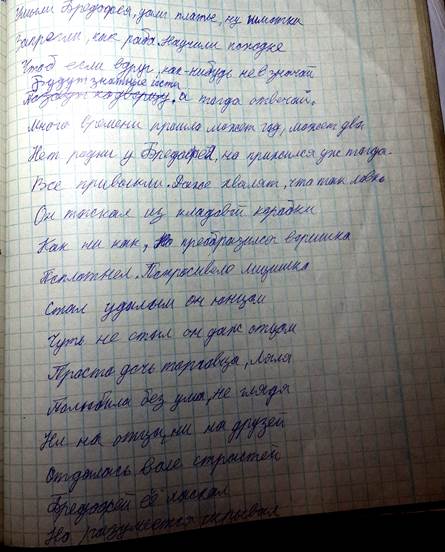 Умыли Бредафея, дали платье, ну шмотки
Запрягли, как раба. Научили походке
Чтоб если вдруг, как-нибудь невзрачай
Будут знатные гости
а тогда отвечай.
Много времени прошло может год, может два
Нет родни у Бредафея, но прижился уж тогда.
Все привыкли. Даже хвалят, что так ловко
Он таскал из кладовой коробки
Как ни как, Но преобразился воришка
Поплотнел. Похрасивело лицишко
Стал удалым он юнцом
Чуть не стал он даж отцом
Просто дочь торговца, Ляля
Полюбила без ума, не глядя
Ни на отца, ни на друзей
Отдалась воле страстей
Бредафей её ласкал
Но разумеется скрывал